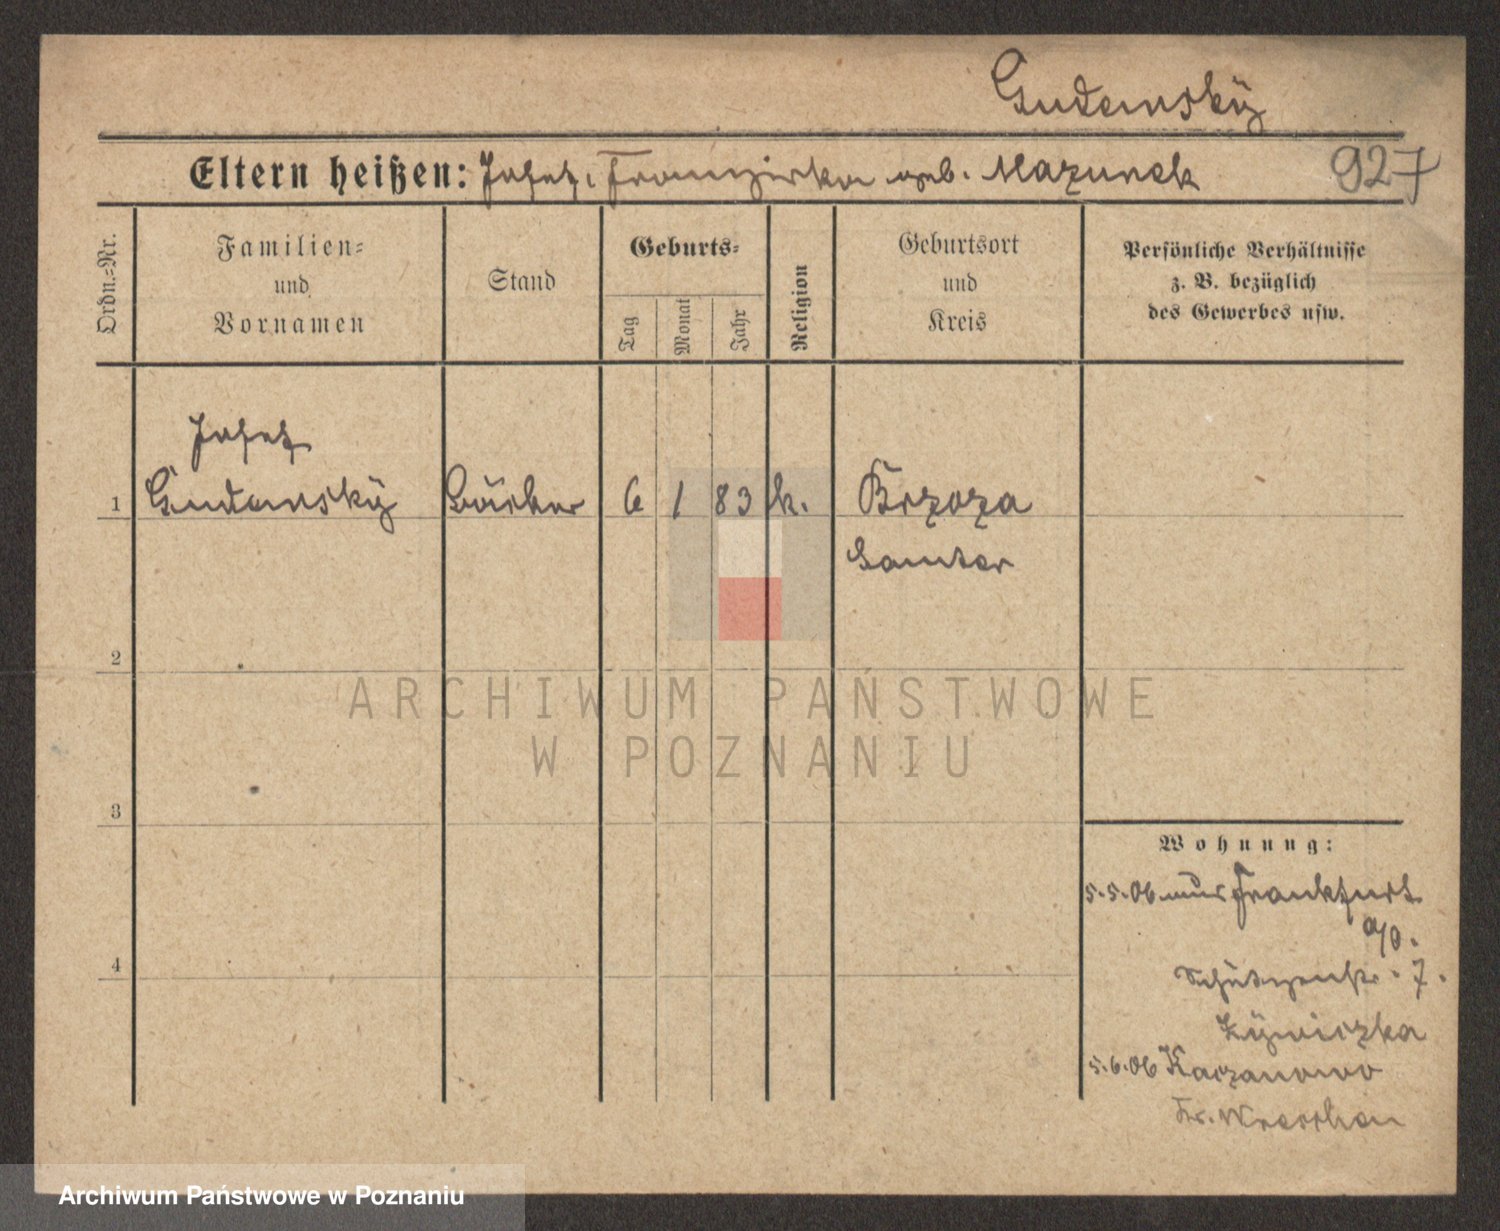 Gudanský
Eltern heißen: Josef, Franziska geb. Mazurek
927
Ordn.=Nr.
Familien=
und
Vornamen
Stand
Geburts=
Tag
Monat
Jahr
Religion
Geburtsort
und
Kreis
Persönliche Verhältnisse
z. B. bezüglich
des Gewerbes usw.
Josef
1 Gudanský Bäcker 6 1 83 k. Brzoza
Samter
2
3
4
Wohnung:
5.5.06 aus Frankfurt
a/O.
Schützenstr. 7.
5.6.06 Kaczanowo
Kr. Wreschen
ARCHIWUM PAŃSTWOWE
W POZNANIU
Archiwum Państwowe w Poznaniu